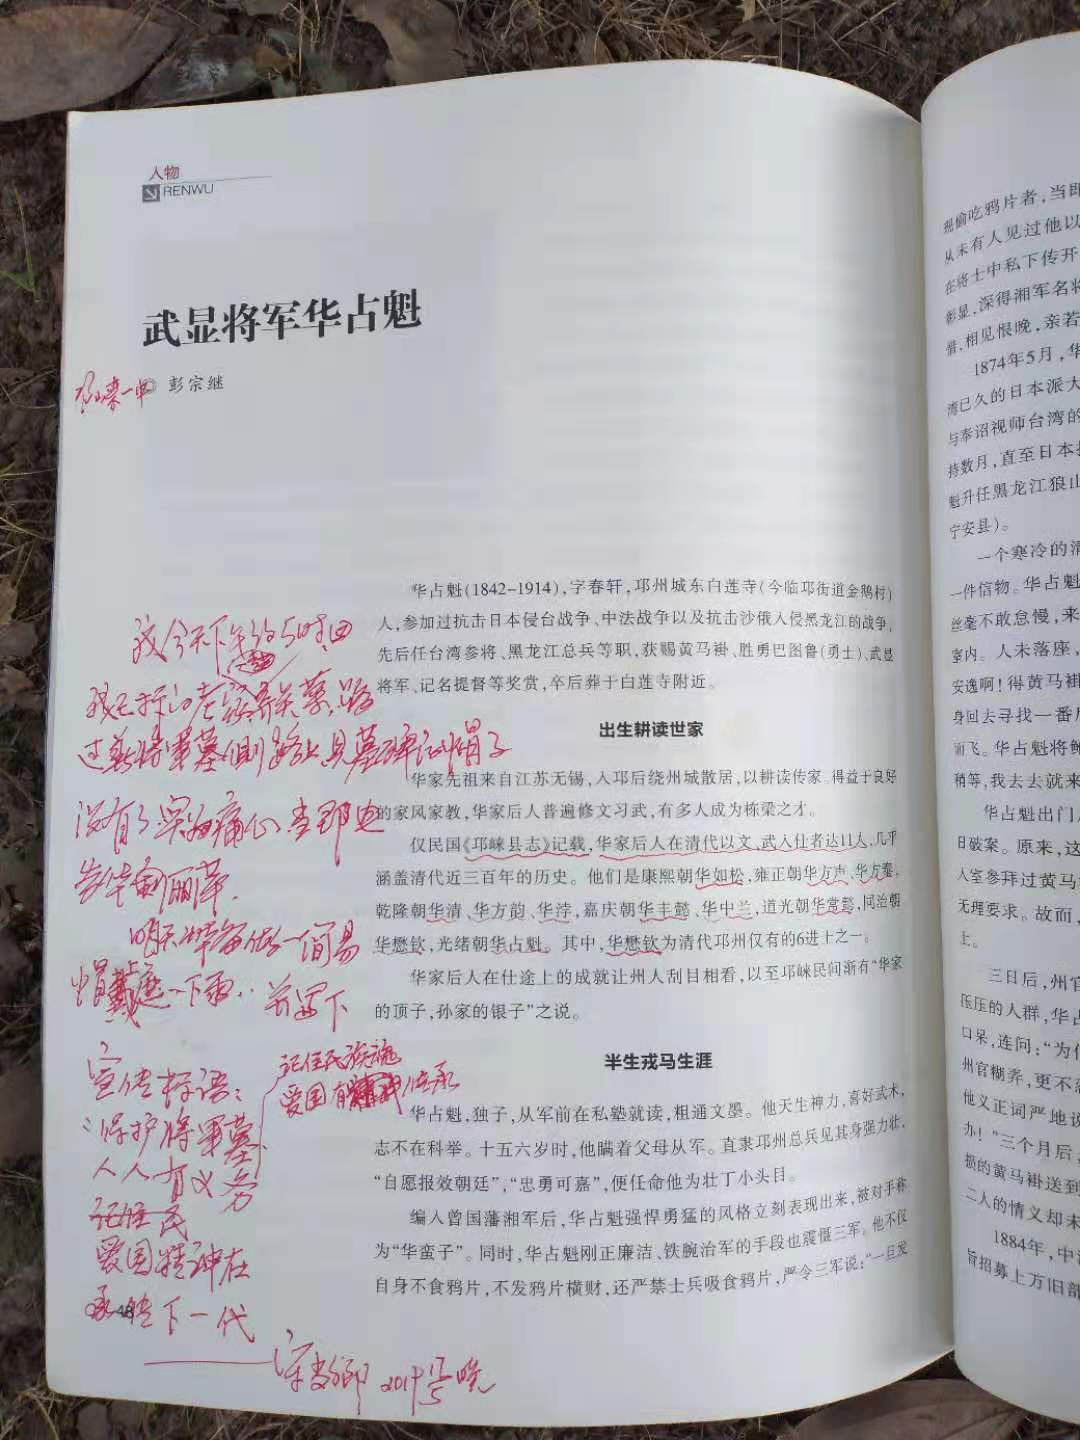 人物
RENWU
武显将军华占魁
彭宗继
华占魁(1842-1914),字春轩,邛州城东白莲寺(今临邛街道金鹅村)
人,参加过抗击日本侵台战争、中法战争以及抗击沙俄入侵黑龙江的战争,
先后任台湾参将、黑龙江总兵等职,获赐黄马褂、胜勇巴图鲁(勇士)、武显
将军、记名提督等奖赏,卒后葬于白莲寺附近。
出生耕读世家
华家先祖来自江苏无锡,入邛后绕州城散居,以耕读传家。得益于良好
的家风家教,华家后人普遍修文习武,有多人成为栋梁之才。
仅民国《邛崃县志》记载,华家后人在清代以文、武入仕者达11人,几乎
涵盖清代近三百年的历史。他们是康熙朝华如松,雍正朝华方声、华方
乾隆朝华清、华方韵、华浡,嘉庆朝华丰懿、华中兰,道光朝华常懿,同治朝
华懋钦,光绪朝华占魁。其中,华懋钦为清代邛州仅有的6进士之一。
华家后人在仕途上的成就让州人刮目相看,以至邛崃民间渐有“华家
的顶子,孙家的银子”之说。
半生戎马生涯
华占魁,独子,从军前在私塾就读,粗通文墨。他天生神力,喜好武术,
志不在科举。十五六岁时,他瞒着父母从军。直隶邛州总兵见其身强力壮,
“自愿报效朝廷”,“忠勇可嘉”,便任命他为壮丁小头目。
编入曾国藩湘军后,华占魁强悍勇猛的风格立刻表现出来,被对手称
为“华蛮子”。同时,华占魁刚正廉洁、铁腕治军的手段也震慑三军。他不仅
自身不食鸦片,不发鸦片横财,还严禁士兵吸食鸦片,严令三军说:“一旦发
48
我今天下午约5时回
过新将军墓侧路上见墓碑
没有了 痛心 当即电
明天 做一简易
下雨.. 并写下
宣传标语:
记住民族魂
爱国有 传承
保护将军墓
人人有义务
记住民
爱国精神在
承传下一代
2019 晚
现偷吃鸦片者,当即
从未有人见过他以
在将士中私下传开
彰显,深得湘军名将
惜,相见恨晚,亲若
1874年5月,华
湾已久的日本派大
与奉诏视师台湾的
持数月,直至日本
魁升任黑龙江狼山
宁安县)。
一个寒冷的清
一件信物。华占魁
丝毫不敢怠慢,来
室内。人未落座,
安逸啊!得黄马褂
身回去寻找一番
而飞。华占魁将
稍等,我去去就来
华占魁出门
日破案。原来,这
人室参拜过黄马
无理要求。故而,
上。
三日后,州官
压压的人群,华占
口呆,连问:“为什
州官糊弄,更不
他义正词严地说
办!”三个月后,
损的黄马褂送到
二人的情义却未
1884年,中
旨招募上万旧部